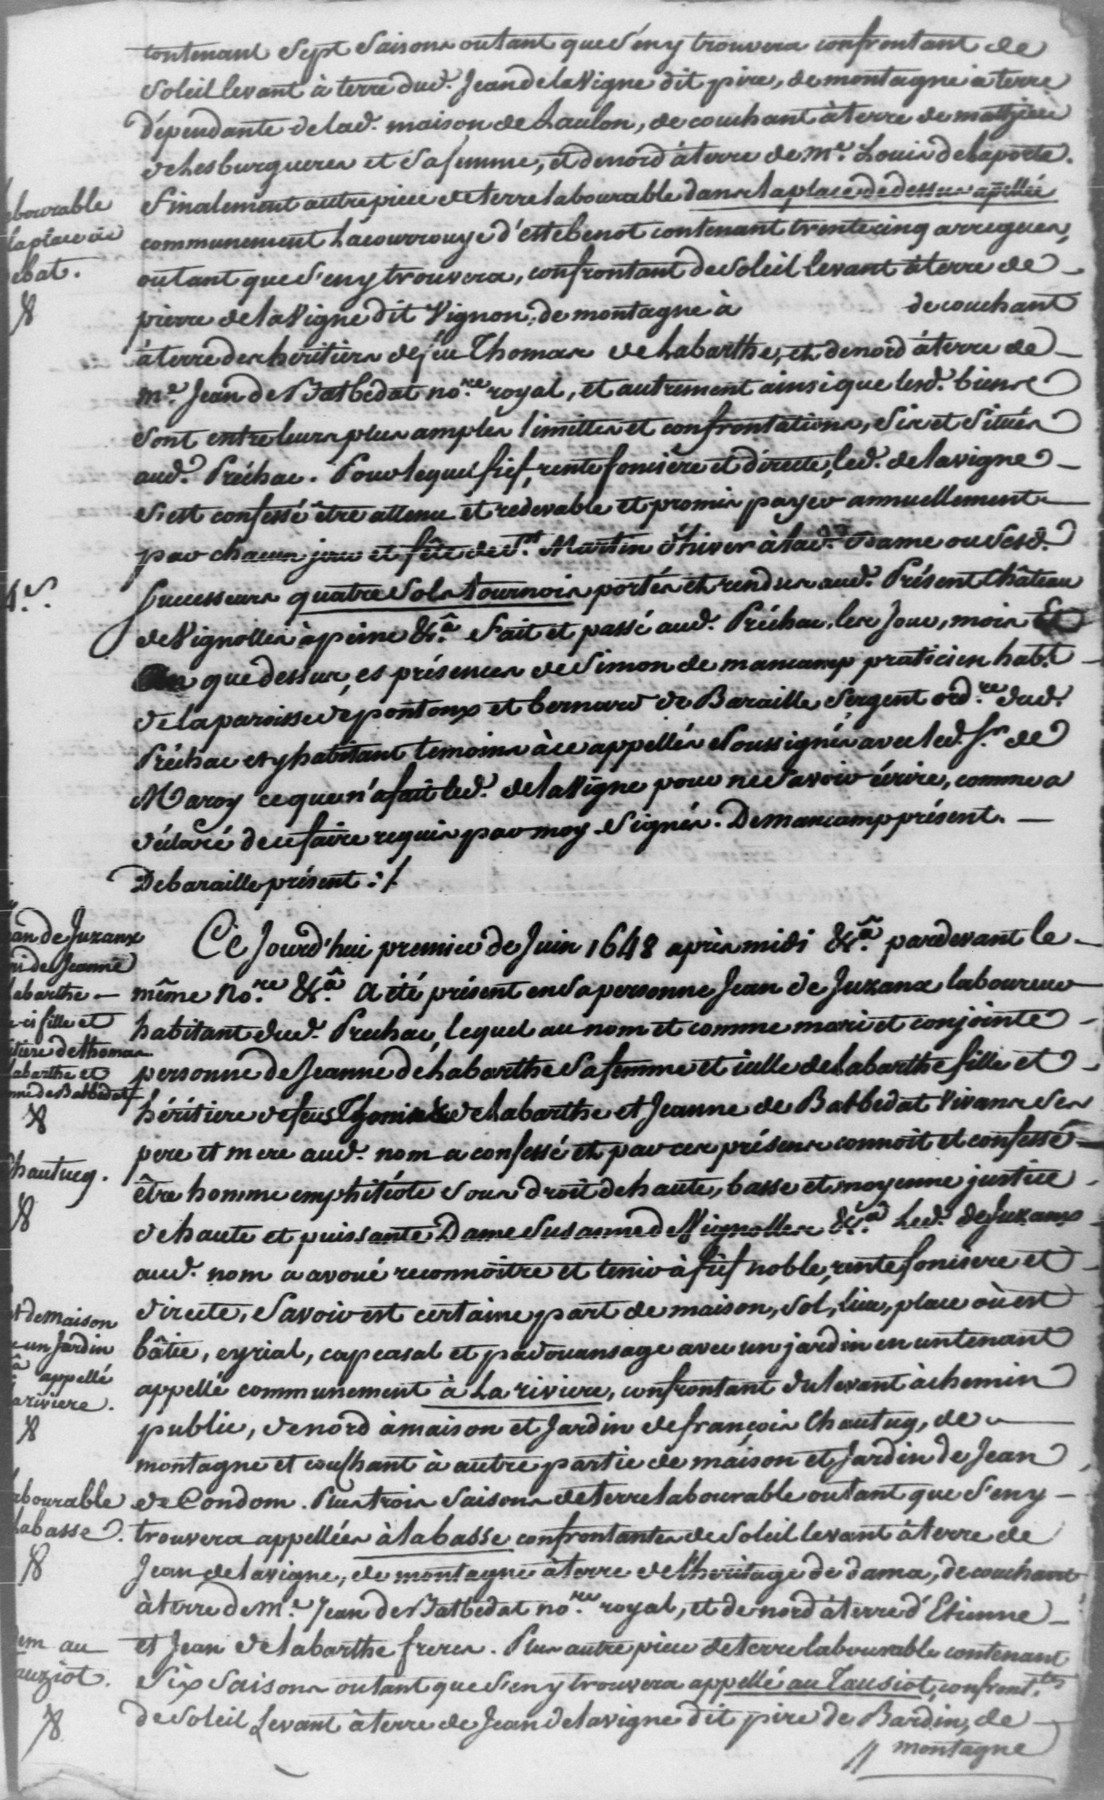 contenant sept saisons outant que s'eny trouvera confrontant de
soleil levant à terre dud. Jean de lavigne dit pire, de montagne à terre
dépendante de lad. maison de Laulon, de couchant à terre de mathieu
de Lesburgueres et sa femme, et de nord à terre de Me. Louis de laporte.
finalement autre piece de terre labourable dans la place de dessus apellée
communement Lacourrouye d'estebenot contenant trente cinq arregues,
outant que s'eny trouvera, confrontant de soleil levant à terre de
pierre de la Vigne dit Vignon, de montagne à de couchant
à terre des héritiers de feu Thomas de Labarthe, et de nord à terre de
me. Jean de Batbedat nore. royal, et autrement ainsi que lesd. biens
sont entre leurs plus amples limittes et confrontations, sis et situés
aud. Préchac. Pour lequel fief, rente fonsière et directe, led. de lavigne
s'est confessé être attenu et redevable et promis payer annuellement
par chacun jour et fête de St. Martin d'hiver à lad. Dame ou sesd.
successeurs quatre sols tournois portés et rendus aud. Présent Château
de Vignolles à peine &ca. fait et passé aud. Préchac les jour, mois Et
An que dessus, es présences de Simon de mancamp praticien habt.
de la paroisse de pontonx et bernard de Baraille sergent ordre. dud.
Préchac et y habitant temoins à ce appellés soussignés avec led. Sr. de
Maroy ce que n'a fait led. de la Vigne pour ne savoir écrire, comme a
déclaré de ce faire requis par moy. signés. Demancamp présent.
Debaraille présent :/
bourable
laplace de
ebat.
Ce Jourd'hui premier de Juin 1648 après midi &ca. pardevant le
même Nore. &ca. A été présent en sa personne Jean de Juzanx laboureur
habitant dud. Prechac, lequel au nom et comme mari et conjointe
personne de Jeanne de Labarthe sa femme et icelle de Labarthe fille et
héritiere de feus Thomas de Labarthe et Jeanne de Batbedat Vivans ses
pere et mere aud. nom a confessé et par ces présens connoit et confessé
être homme emphitéote sous droit de haute, basse et moyenne justice
de haute et puissante Dame Susanne de Vignolles &ca. Led. de Juzanx
aud. nom a avoué reconnoitre et tenir à fief noble, rente fonsiere et
directe, savoir est certaine part de maison, sol, lieu, place où est
bâtie, eyrial, capcasal et padouansage avec un jardin en un tenant
appellé communement à La riviere, confrontant du levant à chemin
public, de nord à maison et Jardin de françois Chautuq, de
montagne et couchant à autre partie de maison et Jardin de Jean
de Condom. Plus trois saisons de terre labourable outant que s'eny
trouvera appellées à labasse confrontantes de soleil levant à terre de
Jean de lavigne, de montagne à terre de l'heritage de dama, de couchant
à terre de Me. Jean de Batbedat nore. royal, et de nord à terre d'Etienne
et Jean de labarthe freres. Plus autre piece de terre labourable contenant
six saisons outant que s'eny trouvera appellé au Tausiot, confrontes.
de soleil Levant à terre de Jean de lavigne dit pire de Bardin, de
montagne
an de Juzanx
ri de Jeanne
abarthe
ci fille et
itiere de thomas
abarthe et
nne de Batbedat
Chautuq.
t de maison
un Jardin
appellé
a riviere.
abourable
labasse.
em au
auziot.